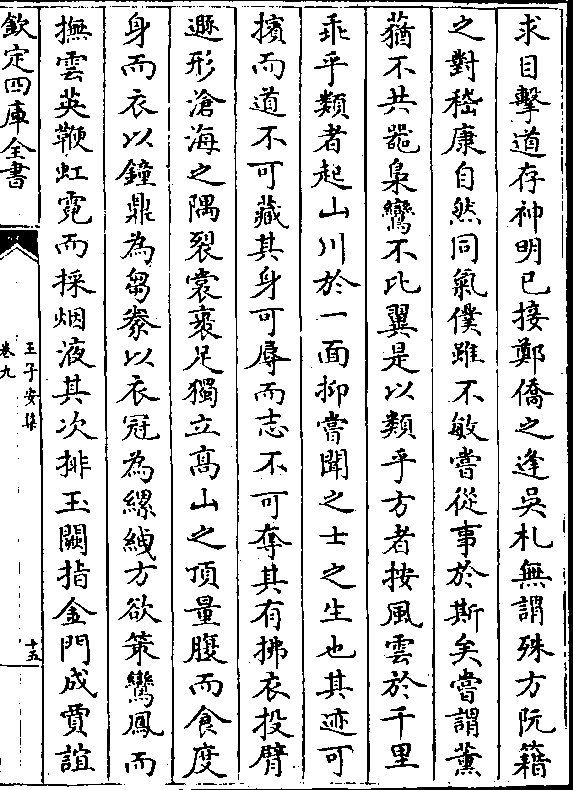 求目擊道存神明已接鄭僑之逢吳札無謂殊方阮籍
之對嵇康自然同氣僕雖不敏嘗從事於斯矣嘗謂薰
蕕不共器梟鸞不比翼是以類乎方者按風雲於千里
乖乎類者起山川於一面抑嘗聞之士之生也其迹可
擯而道不可藏其身可辱而志不可奪其有拂衣投臂
遯形滄海之隅裂裳裹足獨立髙山之頂量腹而食度
身而衣以鐘鼎為芻豢以衣冠為縲絏方欲策鸞鳳而
撫雲英鞭虹霓而採烟液其次排玉闕指金門成賈誼
欽定四庫全書
王子安集
卷九
十五